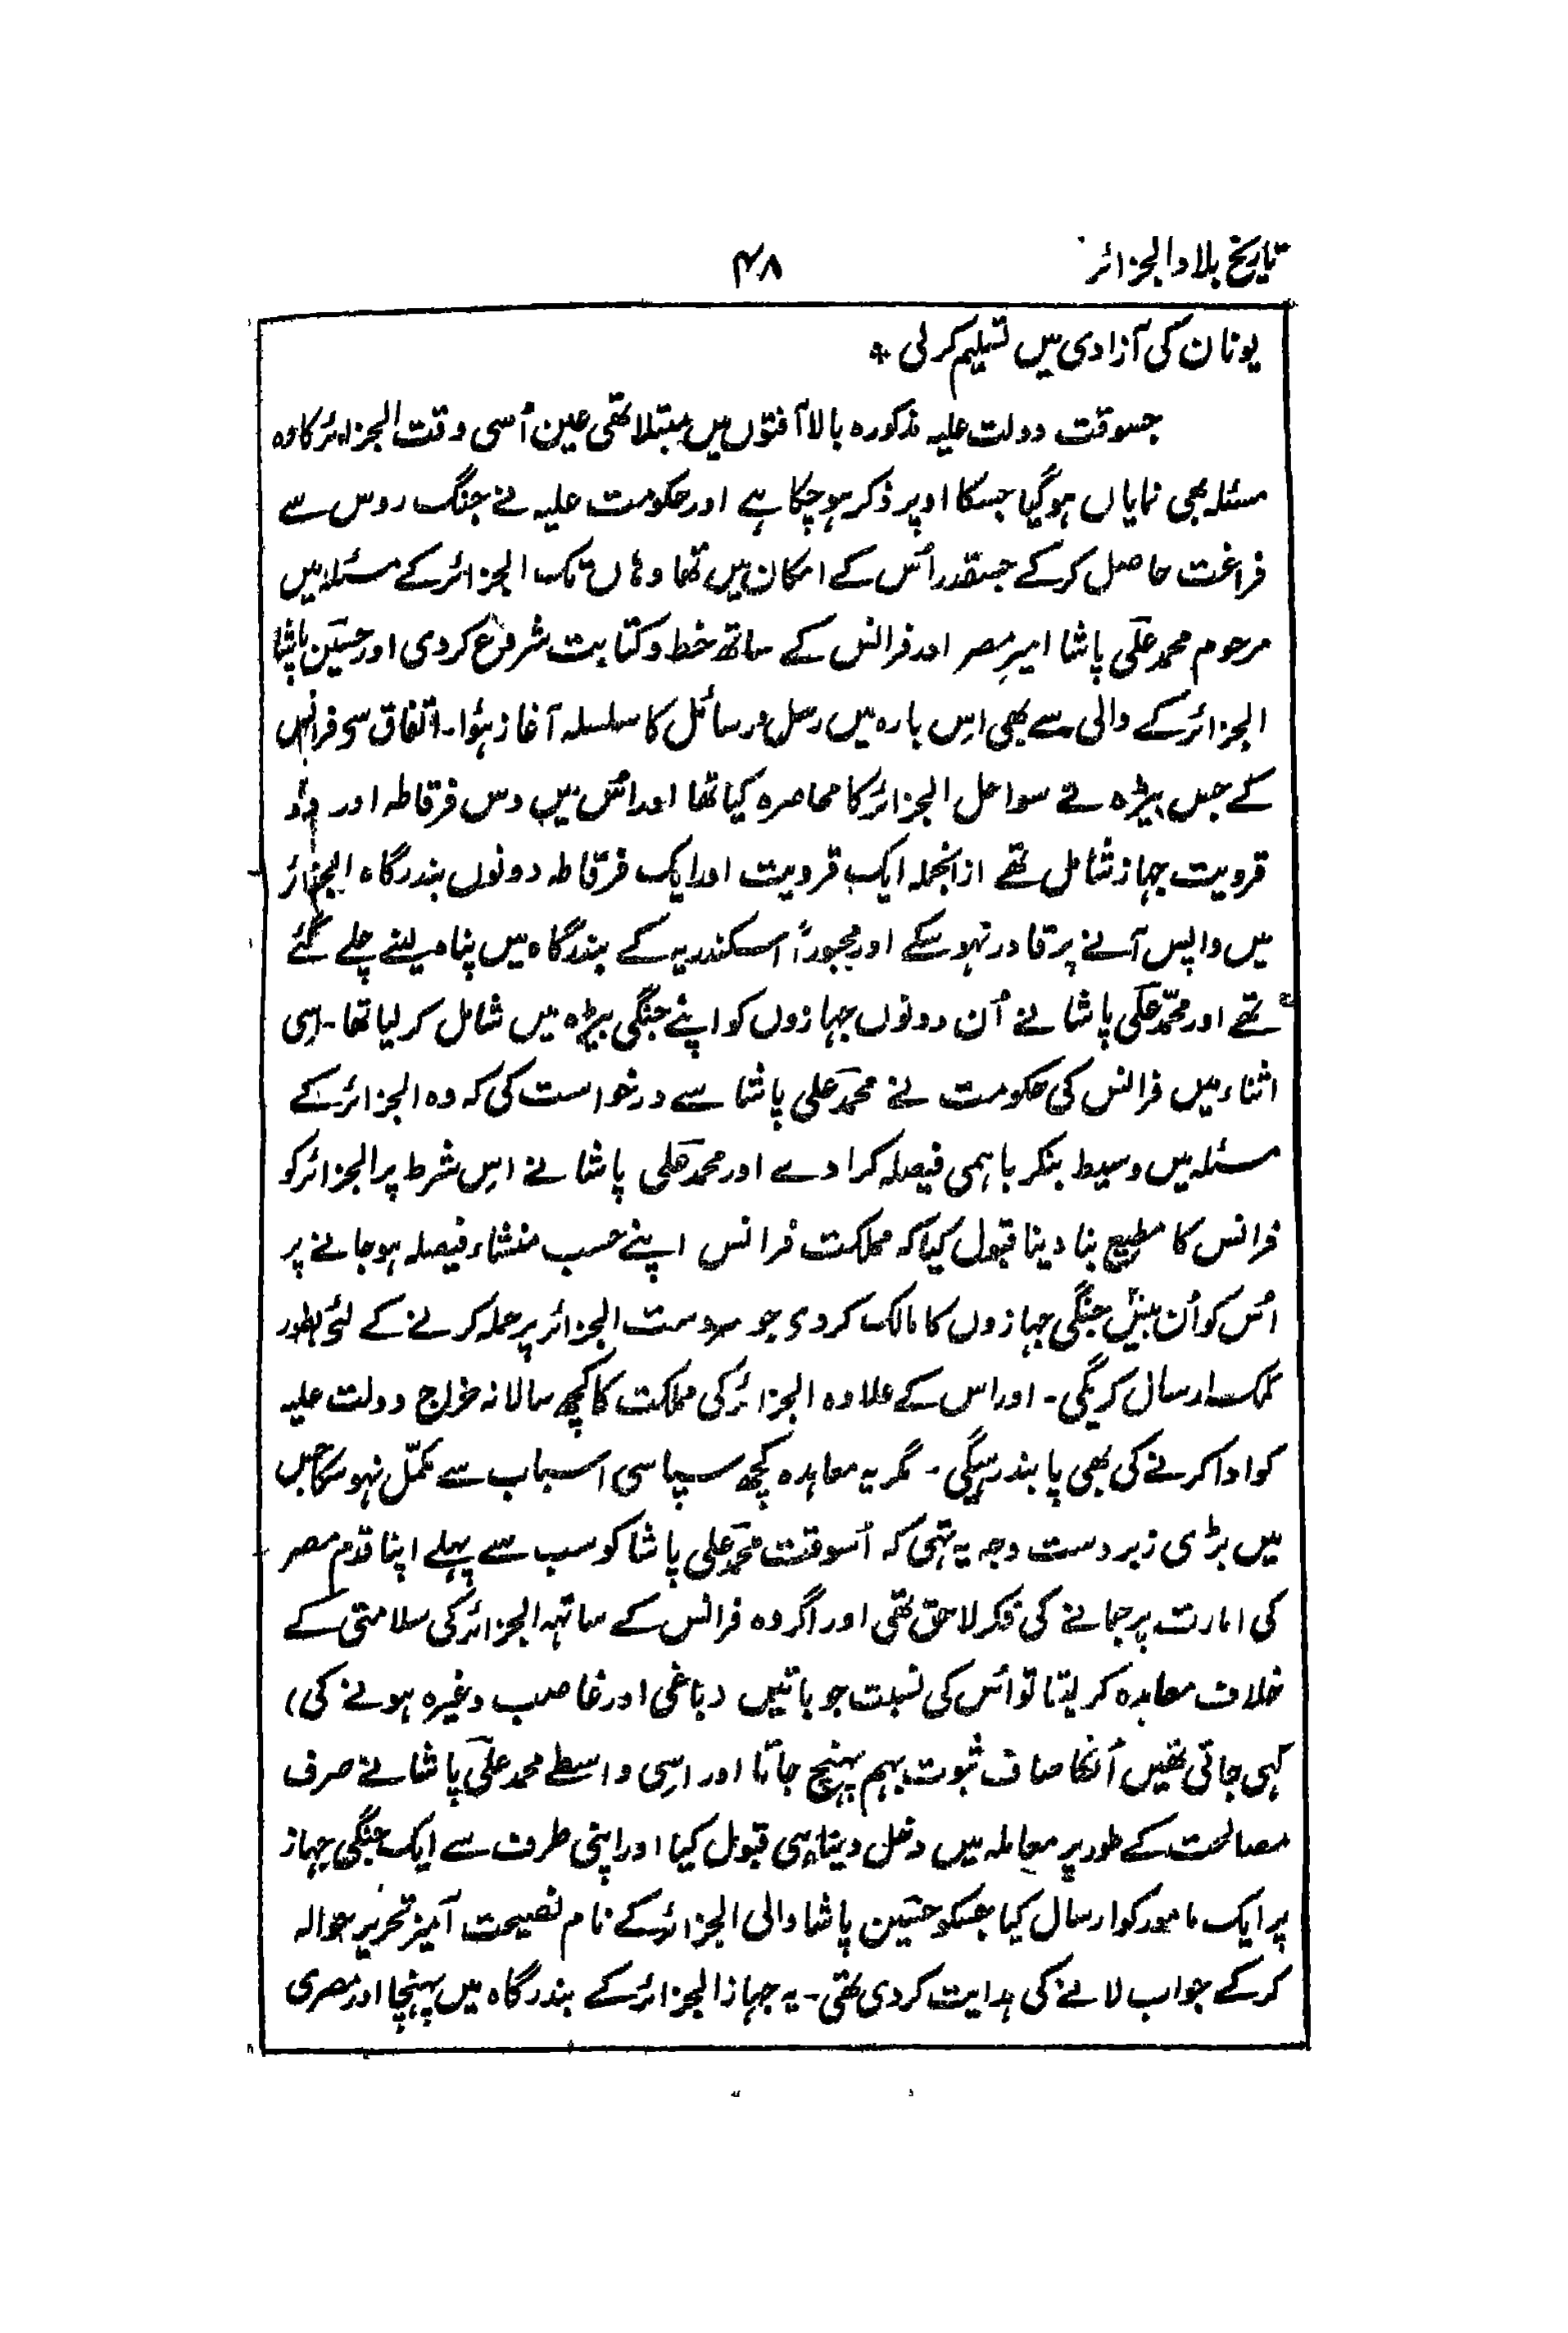 تاریخ بلاد الجزائر
۴۸
یونان کی آزادی میں تسلیم کرلی *
جسوقت دولت علیہ مذکورہ بالا آفتوں میں مبتلا تھی عین اُسی وقت الجزائر کا وہ
مسئلہ بھی نمایاں ہوگیا جسکا اوپر ذکر ہوچکا ہے اور حکومت علیہ نے جنگ روس سے
فراغت حاصل کرکے جسقدر اُس کے امکان میں تھا وہاں تک الجزائر کے مسئلہ میں
مرحوم محمد علی پاشا امیرِ مصر اور فرانس کے ساتھ خط و کتابت شروع کردی اور حسین پاشا
الجزائر کے والی سے بھی اِس بارہ میں رسل و رسائل کا سلسلہ آغاز ہؤا۔ اتفاق سی فرانس
کے جس بیڑہ نے سواحل الجزائر کا محاصرہ کیا تھا اور اُس میں دس فرقاطہ اور دو
قرویت جہاز شامل تھے ازانجملہ ایک قرویت اور ایک فرقاطہ دونوں بندرگاہ الجزائر
میں واپس آنے پر قادر نہوسکے اور مجبوراً اسکندریہ کے بندرگاہ میں پناہ لینے چلے گئے
تھے اور محمّد علی پاشا نے اُن دونوں جہازوں کو اپنے جنگی بیڑہ میں شامل کر لیا تھا۔ اِسی
اثناء میں فرانس کی حکومت نے محمد علی پاشا سے درخواست کی کہ وہ الجزائر کے
مسئلہ میں وسیط بنکر باہمی فیصلہ کرا دے اور محمد علی پاشا نے اِس شرط پر الجزائر کو
فرانس کا مطیع بنا دینا قبول کیا کہ مملکت فرانس اپنے حسب منشاء فیصلہ ہوجانے پر
اُس کو اُن بیس جنگی جہازوں کا مالک کردی جو سردست الجزائر پر حملہ کرنے کے لئی بطور
کمک ارسال کریگی۔ اور اس کے علاوہ الجزائر کی مملکت کا کچھ سالانہ خراج دولت علیہ
کو ادا کرنے کی بھی پابند رہیگی۔ مگر یہ معاہدہ کچھ سیاسی اسباب سے مکمّل نہوسکا جس
میں بڑی زبردست وجہ یہ تہی کہ اُسوقت محمد علی پاشا کو سب سے پہلے اپنا قدم مصر
کی امارت پر جمانے کی فکر لاحق تھی اور اگر وہ فرانس کے ساتہہ الجزائر کی سلامتی کے
خلاف معاہدہ کر لیتا تو اُس کی نسبت جو باتیں (باغی اور غاصب وغیرہ ہونے کی)
کہی جاتی تھیں اُنکا صاف ثبوت بہم پہنچ جاتا اور اِسی واسطے محمد علی پاشا نے صرف
مصالحت کے طور پر معاملہ میں دخل دینا ہی قبول کیا اور اپنی طرف سے ایک جنگی جہاز
پر ایک مامور کو ارسال کیا جسکو حسین پاشا والی الجزائر کے نام نصیحت آمیز تحریر حوالہ
کرکے جواب لانے کی ہدایت کردی تھی۔ یہ جہاز الجزائر کے بندرگاہ میں پہنچا اور مصری